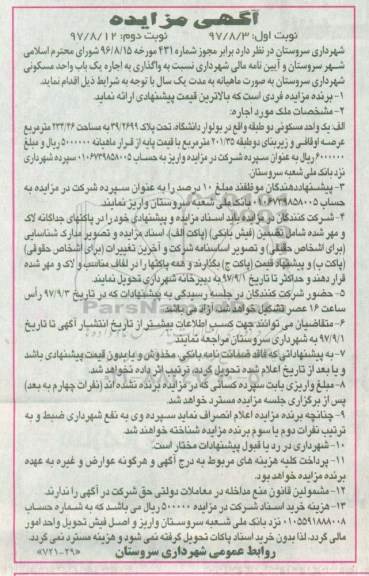 آگهی مزایده
نوبت اول: ۹۷/۸/۳ نوبت دوم: ۹۷/۸/۱۲
شهرداری سروستان در نظر دارد برابر مجوز شماره ۴۳۱ مورخه ۹۶/۸/۱۵ شورای محترم اسلامی
شهر سروستان و آیین نامه مالی شهرداری نسبت به واگذاری به اجاره یک باب واحد مسکونی
شهرداری سروستان به صورت ماهیانه به مدت یک سال با توجه به شرایط ذیل اقدام نماید.
۱- برنده مزایده فردی است که بالاترین قیمت پیشنهادی ارائه نماید.
۲- مشخصات ملک مورد اجاره:
الف: یک واحد مسکونی دو طبقه واقع در بولوار دانشگاه، تحت پلاک ۳۹/۲۶۹۹ به مساحت ۲۳۴/۴۶ مترمربع
عرصه اوقافی و زیربنای دو طبقه ۲۰۱/۳۵ مترمربع با قیمت پایه از قرار ماهیانه ۵۰۰۰۰۰۰ ریال و مبلغ
۶۰۰۰۰۰۰ ریال به عنوان سپرده شرکت در مزایده واریز به حساب ۰۱۰۶۷۳۹۸۵۸۰۰۵ سپرده شهرداری
نزد بانک ملی شعبه سروستان.
۳- پیشنهاددهندگان موظفند مبلغ ۱۰ درصد را به عنوان سپرده شرکت در مزایده به
حساب ۰۱۰۶۷۳۹۸۵۸۰۰۵ بانک ملی شعبه سروستان واریز نمایند.
۴- شرکت کنندگان در مزایده باید اسناد مزایده و پیشنهادی خود را در پاکتهای جداگانه لاک
و مهر شده شامل تضمین (فیش بانکی) (پاکت الف)، اسناد مزایده و تصویر مدارک شناسایی
(برای اشخاص حقیقی) و تصویر اساسنامه شرکت و آخرین تغییرات (برای اشخاص حقوقی)
(پاکت ب) و پیشنهاد قیمت (پاکت ج) بگذارند و همه پاکتها را در لفاف مناسب و لاک و مهر شده
قرار دهند و حداکثر تا تاریخ ۹۷/۹/۱ به دبیرخانه شهرداری تحویل نمایند.
۵- حضور شرکت کنندگان در جلسه رسیدگی به پیشنهادات که در تاریخ ۹۷/۹/۳ رأس
ساعت ۱۶ عصر تشکیل خواهد شد، آزاد می باشد.
۶- متقاضیان می توانند جهت کسب اطلاعات بیشتر از تاریخ انتشار آگهی تا تاریخ
۹۷/۹/۱ به شهرداری سروستان مراجعه نمایند.
۷- به پیشنهاداتی که فاقد ضمانت نامه بانکی مخدوش و یا بدون قیمت پیشنهادی باشد
و یا بعد از تاریخ اعلام شده تحویل گردد، ترتیب اثر داده نخواهد شد.
۸- مبلغ واریزی بابت سپرده کسانی که در مزایده برنده نشده اند (نفرات چهارم به بعد)
پس از برگزاری جلسه مزایده مسترد خواهد شد.
۹- چنانچه برنده مزایده اعلام انصراف نماید سپرده وی به نفع شهرداری ضبط و به
ترتیب نفرات دوم یا سوم برنده مزایده شناخته خواهند شد.
۱۰- شهرداری در رد یا قبول پیشنهادات مختار است.
۱۱- پرداخت کلیه هزینه های مربوط به درج آگهی و هرگونه عوارض و غیره به عهده
برنده مزایده خواهد بود.
۱۲- مشمولین قانون منع مداخله در معاملات دولتی حق شرکت در آگهی را ندارند.
۱۳- هزینه خرید اسناد شرکت در مزایده ۵۰۰۰۰۰ ریال می باشد که به شماره حساب
۰۱۰۵۵۹۱۸۸۸۰۰۸ نزد بانک ملی شعبه سروستان واریز و اصل فیش تحویل واحد امور
مالی گردد، لذا بدون خرید اسناد پاکات تحویل گرفته نمی شود و هزینه مسترد نمی گردد.
روابط عمومی شهرداری سروستان «۷۲۱-۲۹»